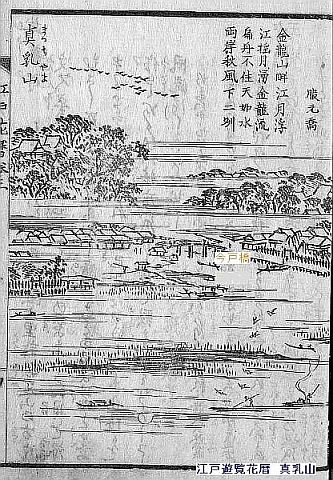 服元喬
金龍山畔江月浮
江揺月湧金龍流
扁舟不住天如水
兩岸秋風下二州
真乳山
まつちやま
今戸橋
江戸遊覧花暦 真乳山